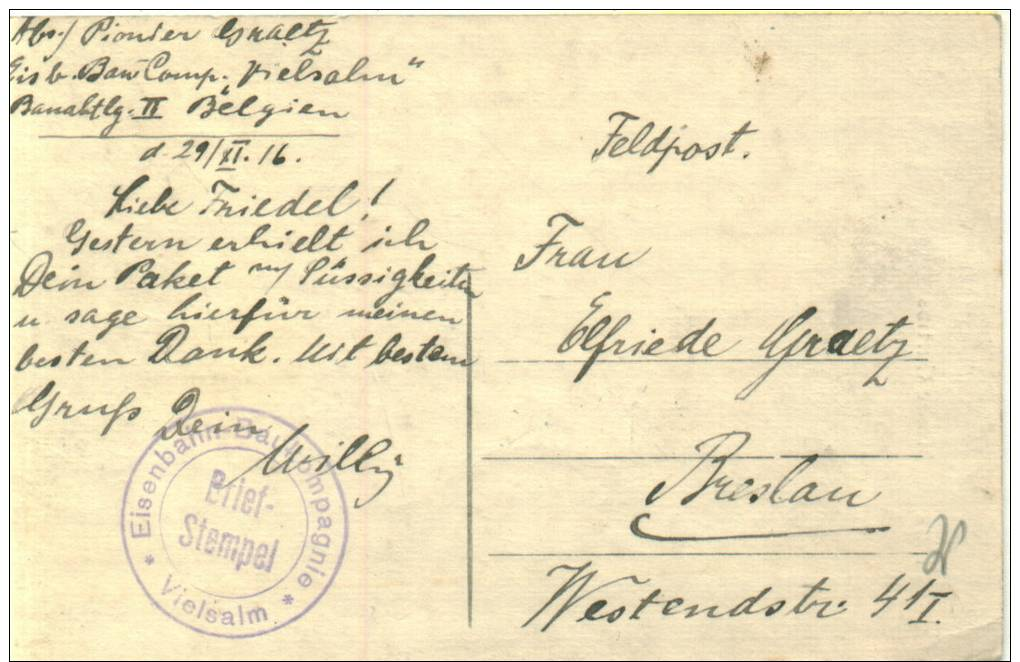 Abs./ Pionier Graetz
Eisb. Bau Comp. „Vielsalm“
Bauabtlg. II Belgien
d. 29/XI. 16.
Liebe Friedel!
Gestern erhielt ich
Dein Paket m/ Süssigkeiten
u. sage hierfür meinen
besten Dank. Mit bestem
Gruß Dein
Willy
Eisenbahn-Baukompagnie
Brief-
Stempel
* Vielsalm *
Feldpost.
Frau
Elfriede Graetz
Breslau
Westendstr. 41 I.